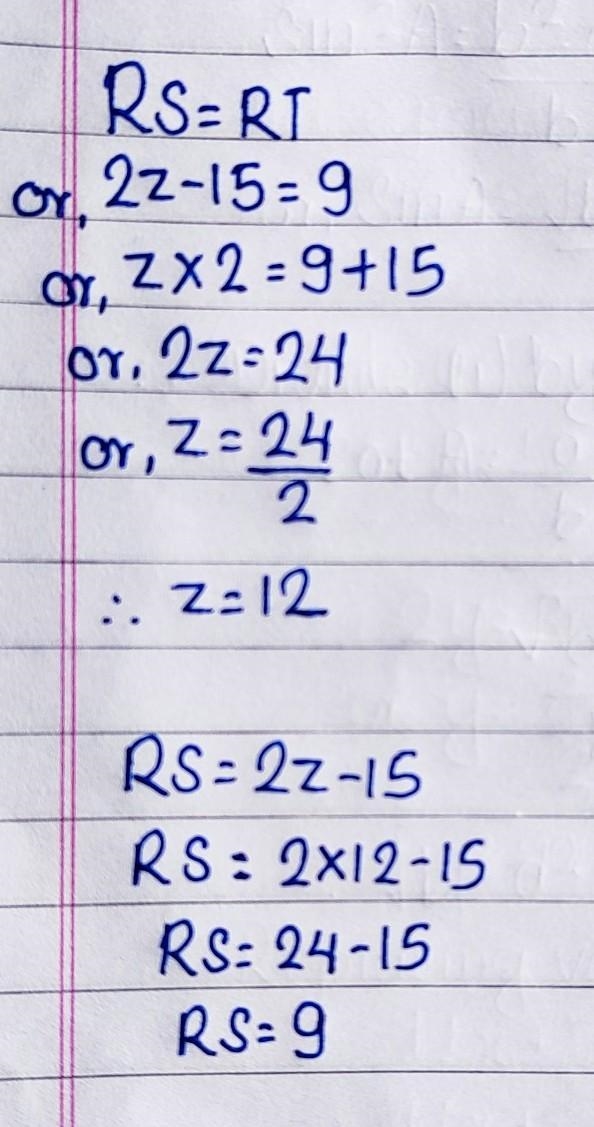 RS=RT
or, 2z-15=9
or, z×2=9+15
or, 2z=24
or, z=24/2
∴ z=12
RS=2z-15
RS=2×12-15
RS=24-15
RS=9